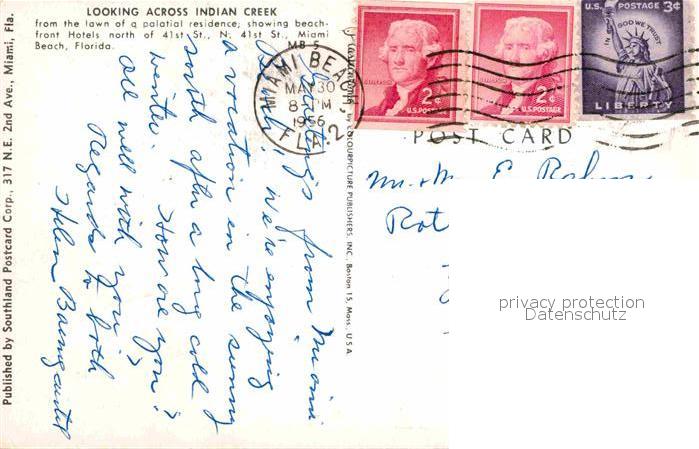 LOOKING ACROSS INDIAN CREEK
from the lawn of a palatial residence; showing beach-
front Hotels north of 41st St., N. 41st St., Miami
Beach, Florida.
Published by Southland Postcard Corp., 317 N.E. 2nd Ave., Miami, Fla.
Greetings from Miami
Beach! We're enjoying
a vacation in the sunny
south after a long cold
winter. How are you?
All well with you
?
Regards to both
Helen
by COLOURPICTURE PUBLISHERS, INC., Boston 15, Mass., U.S.A
MB 5
MIAMI BEACH
MAY 30
PM
1956
FLA. 2
U.S. POSTAGE
2¢
U.S. POSTAGE
2¢
U.S. POSTAGE 3¢
IN GOD WE TRUST
LIBERTY
POST CARD
Mr. & Mrs. E.
Rot
privacy protection
Datenschutz